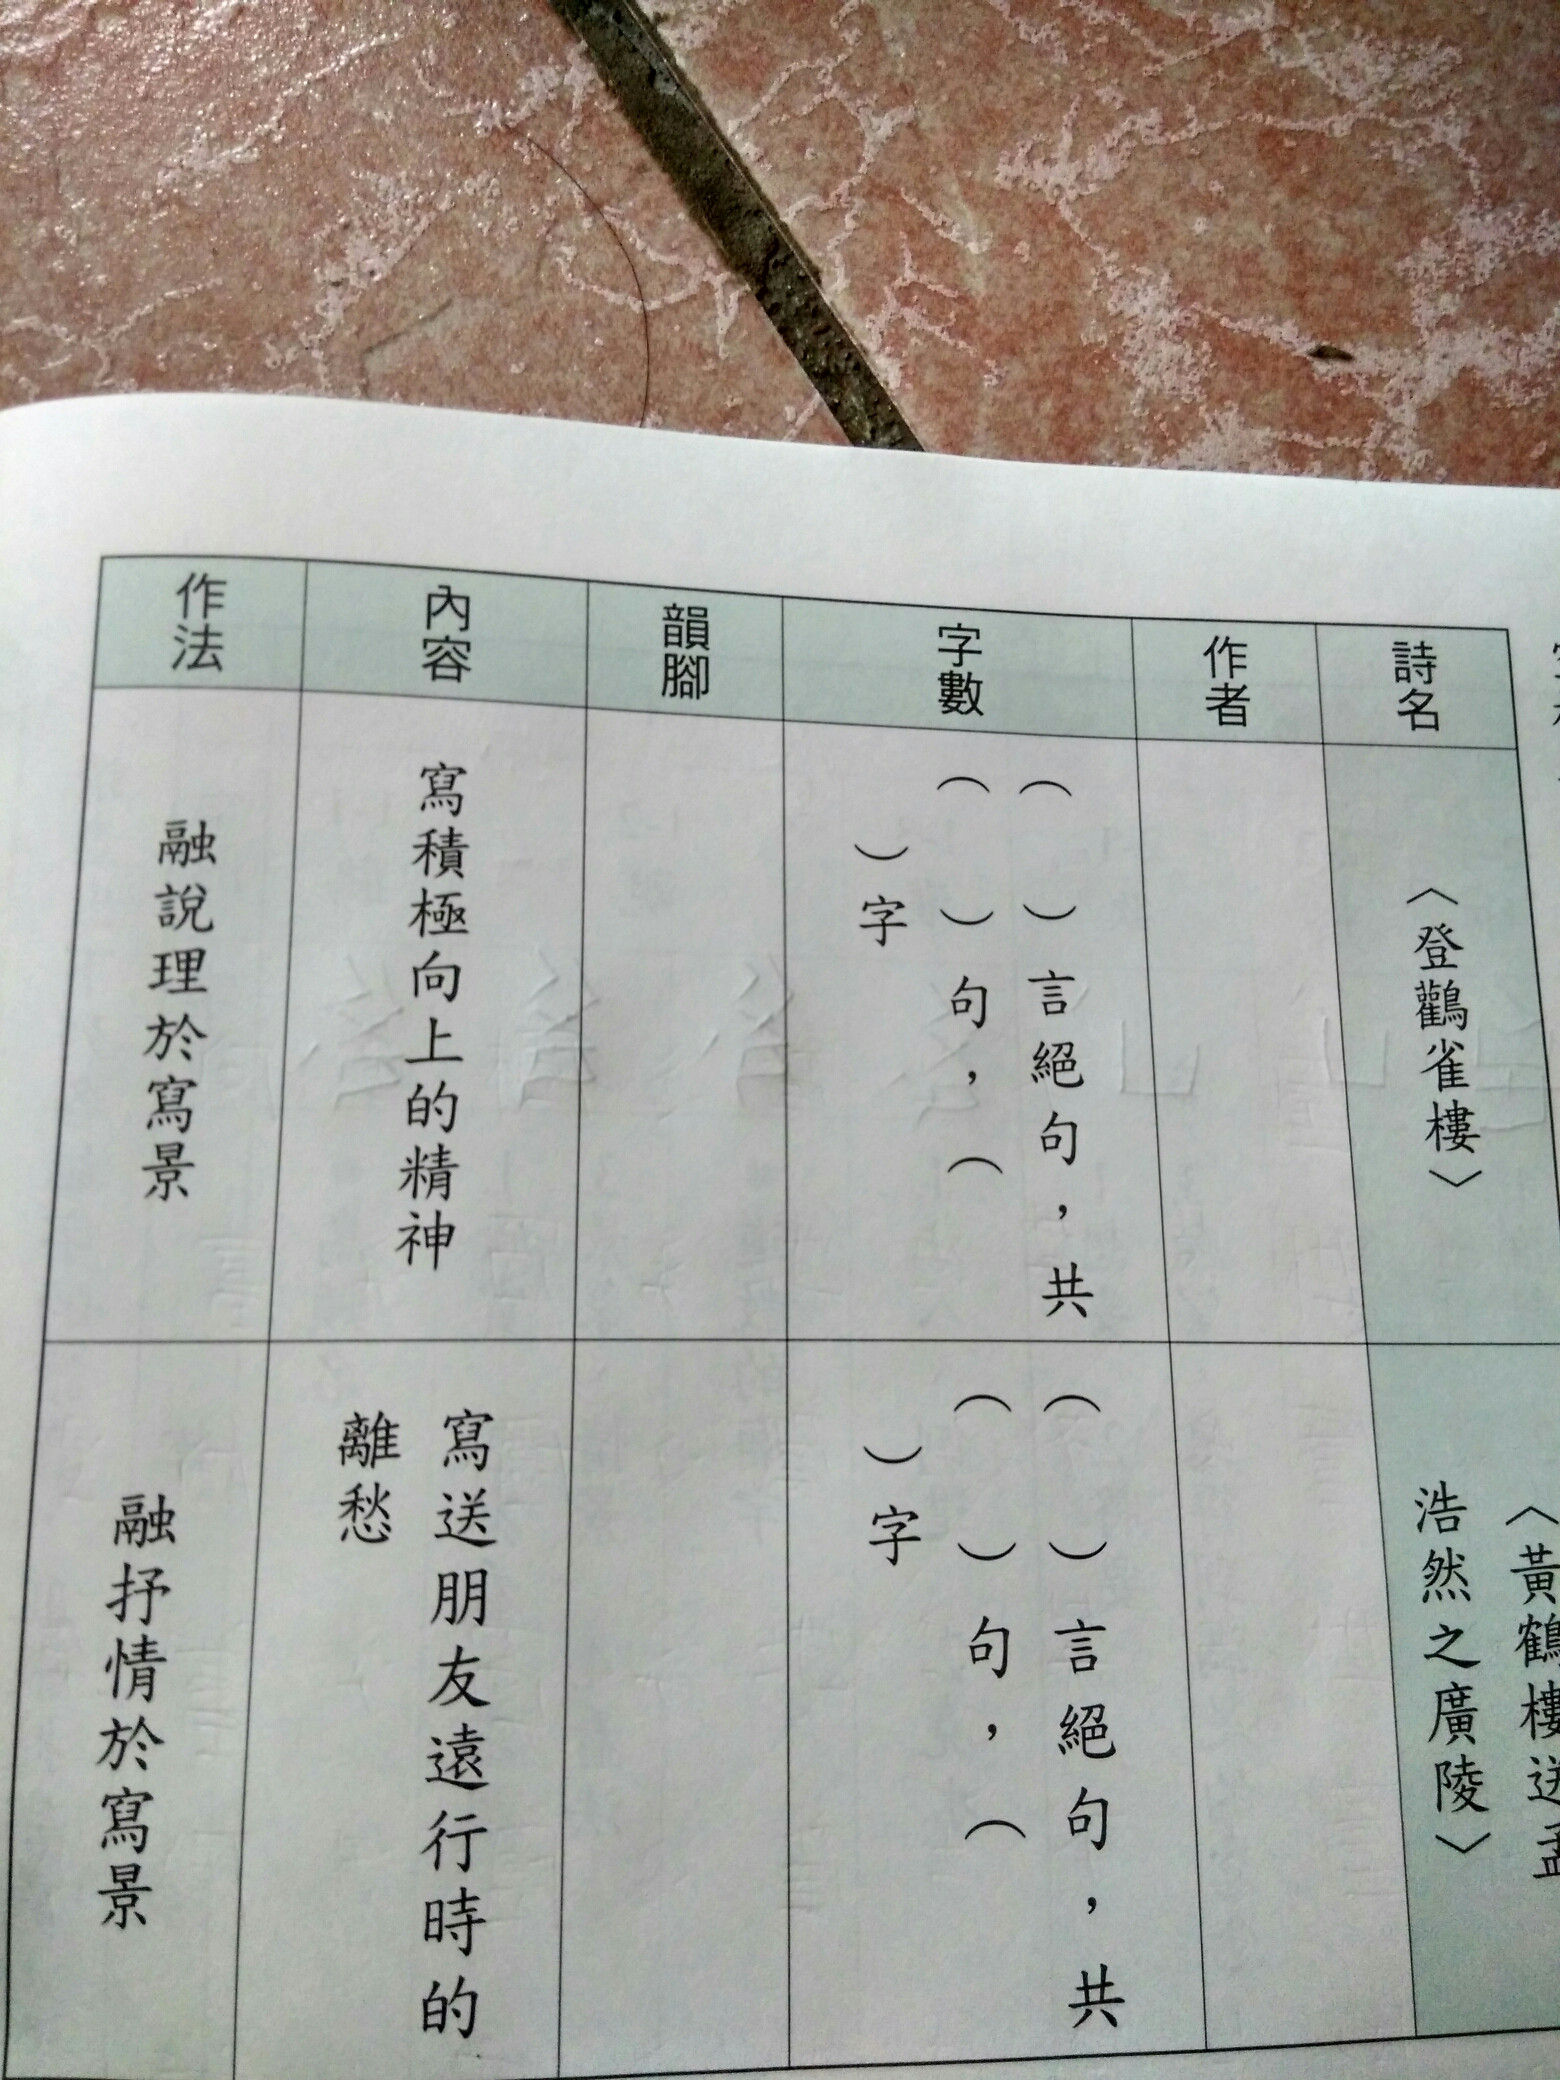 詩名
〈登鸛雀樓〉
〈黃鶴樓送孟
浩然之廣陵〉
作者
字數
（　）言絕句，共
（　）句，（
）字
（　）言絕句，共
（　）句，（
）字
韻腳
內容
寫積極向上的精神
寫送朋友遠行時的
離愁
作法
融說理於寫景
融抒情於寫景